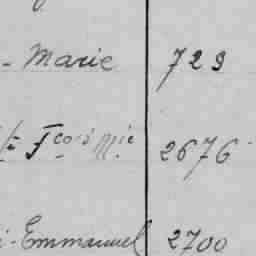 - Marie 729
Fcois Mie 2676
- Emmanuel 2700